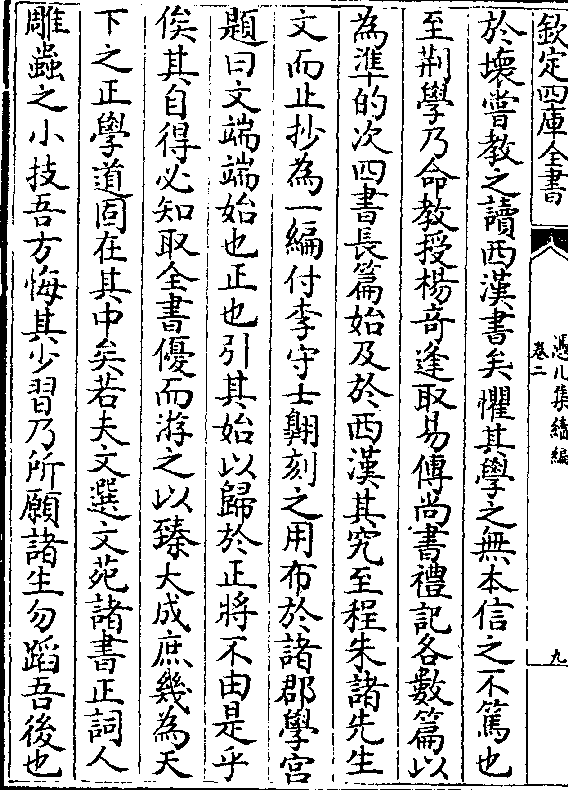 欽定四庫全書
憑几集續編
卷二
九
於壞嘗教之讀西漢書矣懼其學之無本信之不篤也
至荆學乃命教授楊奇逢取易傳尚書禮記各數篇以
為準的次四書長篇始及於西漢其究至程朱諸先生
文而止抄為一編付李守士翺刻之用布於諸郡學宮
題曰文端端始也正也引其始以歸於正將不由是乎
俟其自得必知取全書優而游之以臻大成庶幾為天
下之正學道固在其中矣若夫文選文苑諸書正詞人
雕蟲之小技吾方悔其少習乃所願諸生勿蹈吾後也